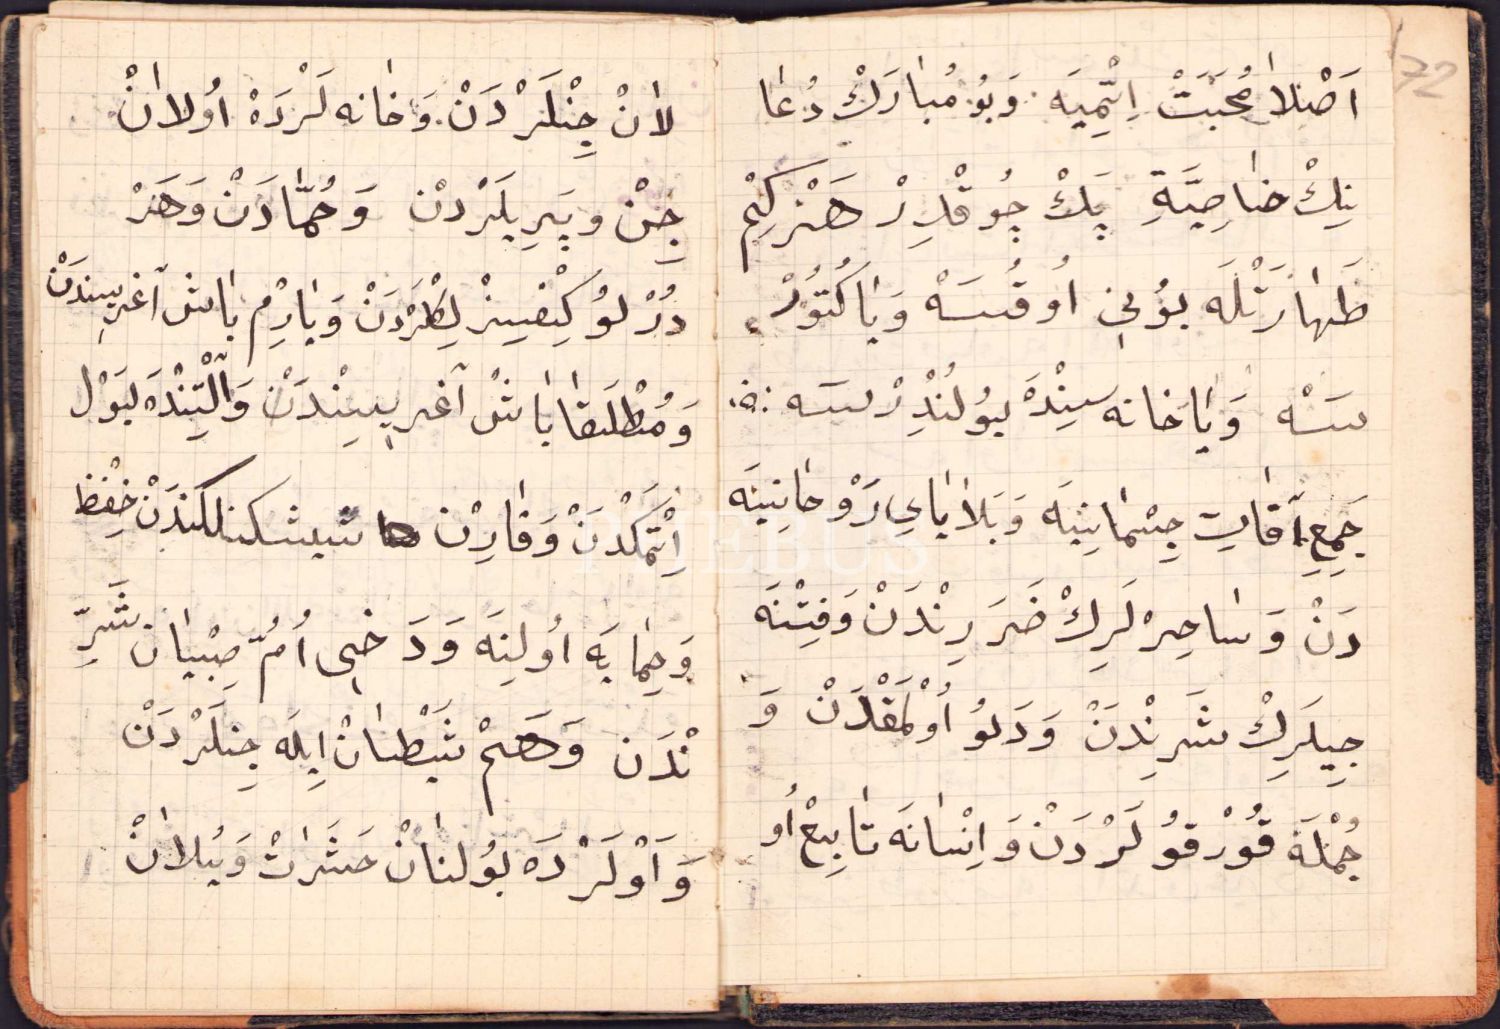 72
اَصْلَا مُحَبَّتْ اِتْمِيَه وَبُو مُبَارَكْ دُعَا
نِكْ خَاصِيَّةِ پَكْ چُوقْدِرْ هَرْ كِيمْ
طَهَارَتْلَه بُونِي اُوقُسَه وَيَا كُتُورْ
سَه وَيَا خَانَه سِينْدَه بُولُنْدِرْسَه
جَمِعِ آفَاتِ جِسْمَانِيَه وَبَلَايَايِ رَوْحَانِيَه
دَنْ وَسَاحِرْلَرِكْ ضَرَرِنْدَنْ وَفِتْنَه
جِيلَرِكْ شَرِنْدَنْ وَدَلُو اُوْلْمَقْدَنْ وَ
جُمْلَه قُورْقُولَرْدَنْ وَاِنْسَانَه تَابِعْ اُو
لَانْ جِنْلَرْدَنْ وَخَانَه لَرْدَه اُولَانْ
جِنْ وپَرِيلَرْدنْ وَحُمَّادَنْ وَهَرْ
دُرْلُو كِيْفسِزْلِكْلَرْدَنْ وَيَارِمْ بَاشْ آغْرِيسِندَنْ
وَمُطْلَقَا بَاشْ آغْرِيسِنْدَنْ وَآلْتِنْدَه بَوْل
اِتْمَكْدَنْ وَقَارِنْ شيشكنلكندَنْ حِفْظ
وَحِمَايَه اُولِنَه وَدَخِي اُمُّ صِبْيَان شَرِّ
نْدَن وَهَمْ شَيْطَانْ اِيلَه جِنلَرْدَنْ
وَاَوْلَرْدَه بُولنَانْ حَشَرَاتْ وَيِلَانْ
PHEBUS